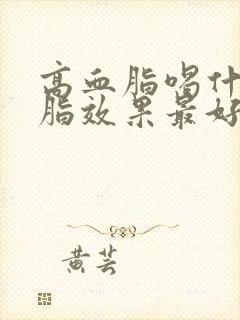 高血脂喝什
脂效果最好
黄芸